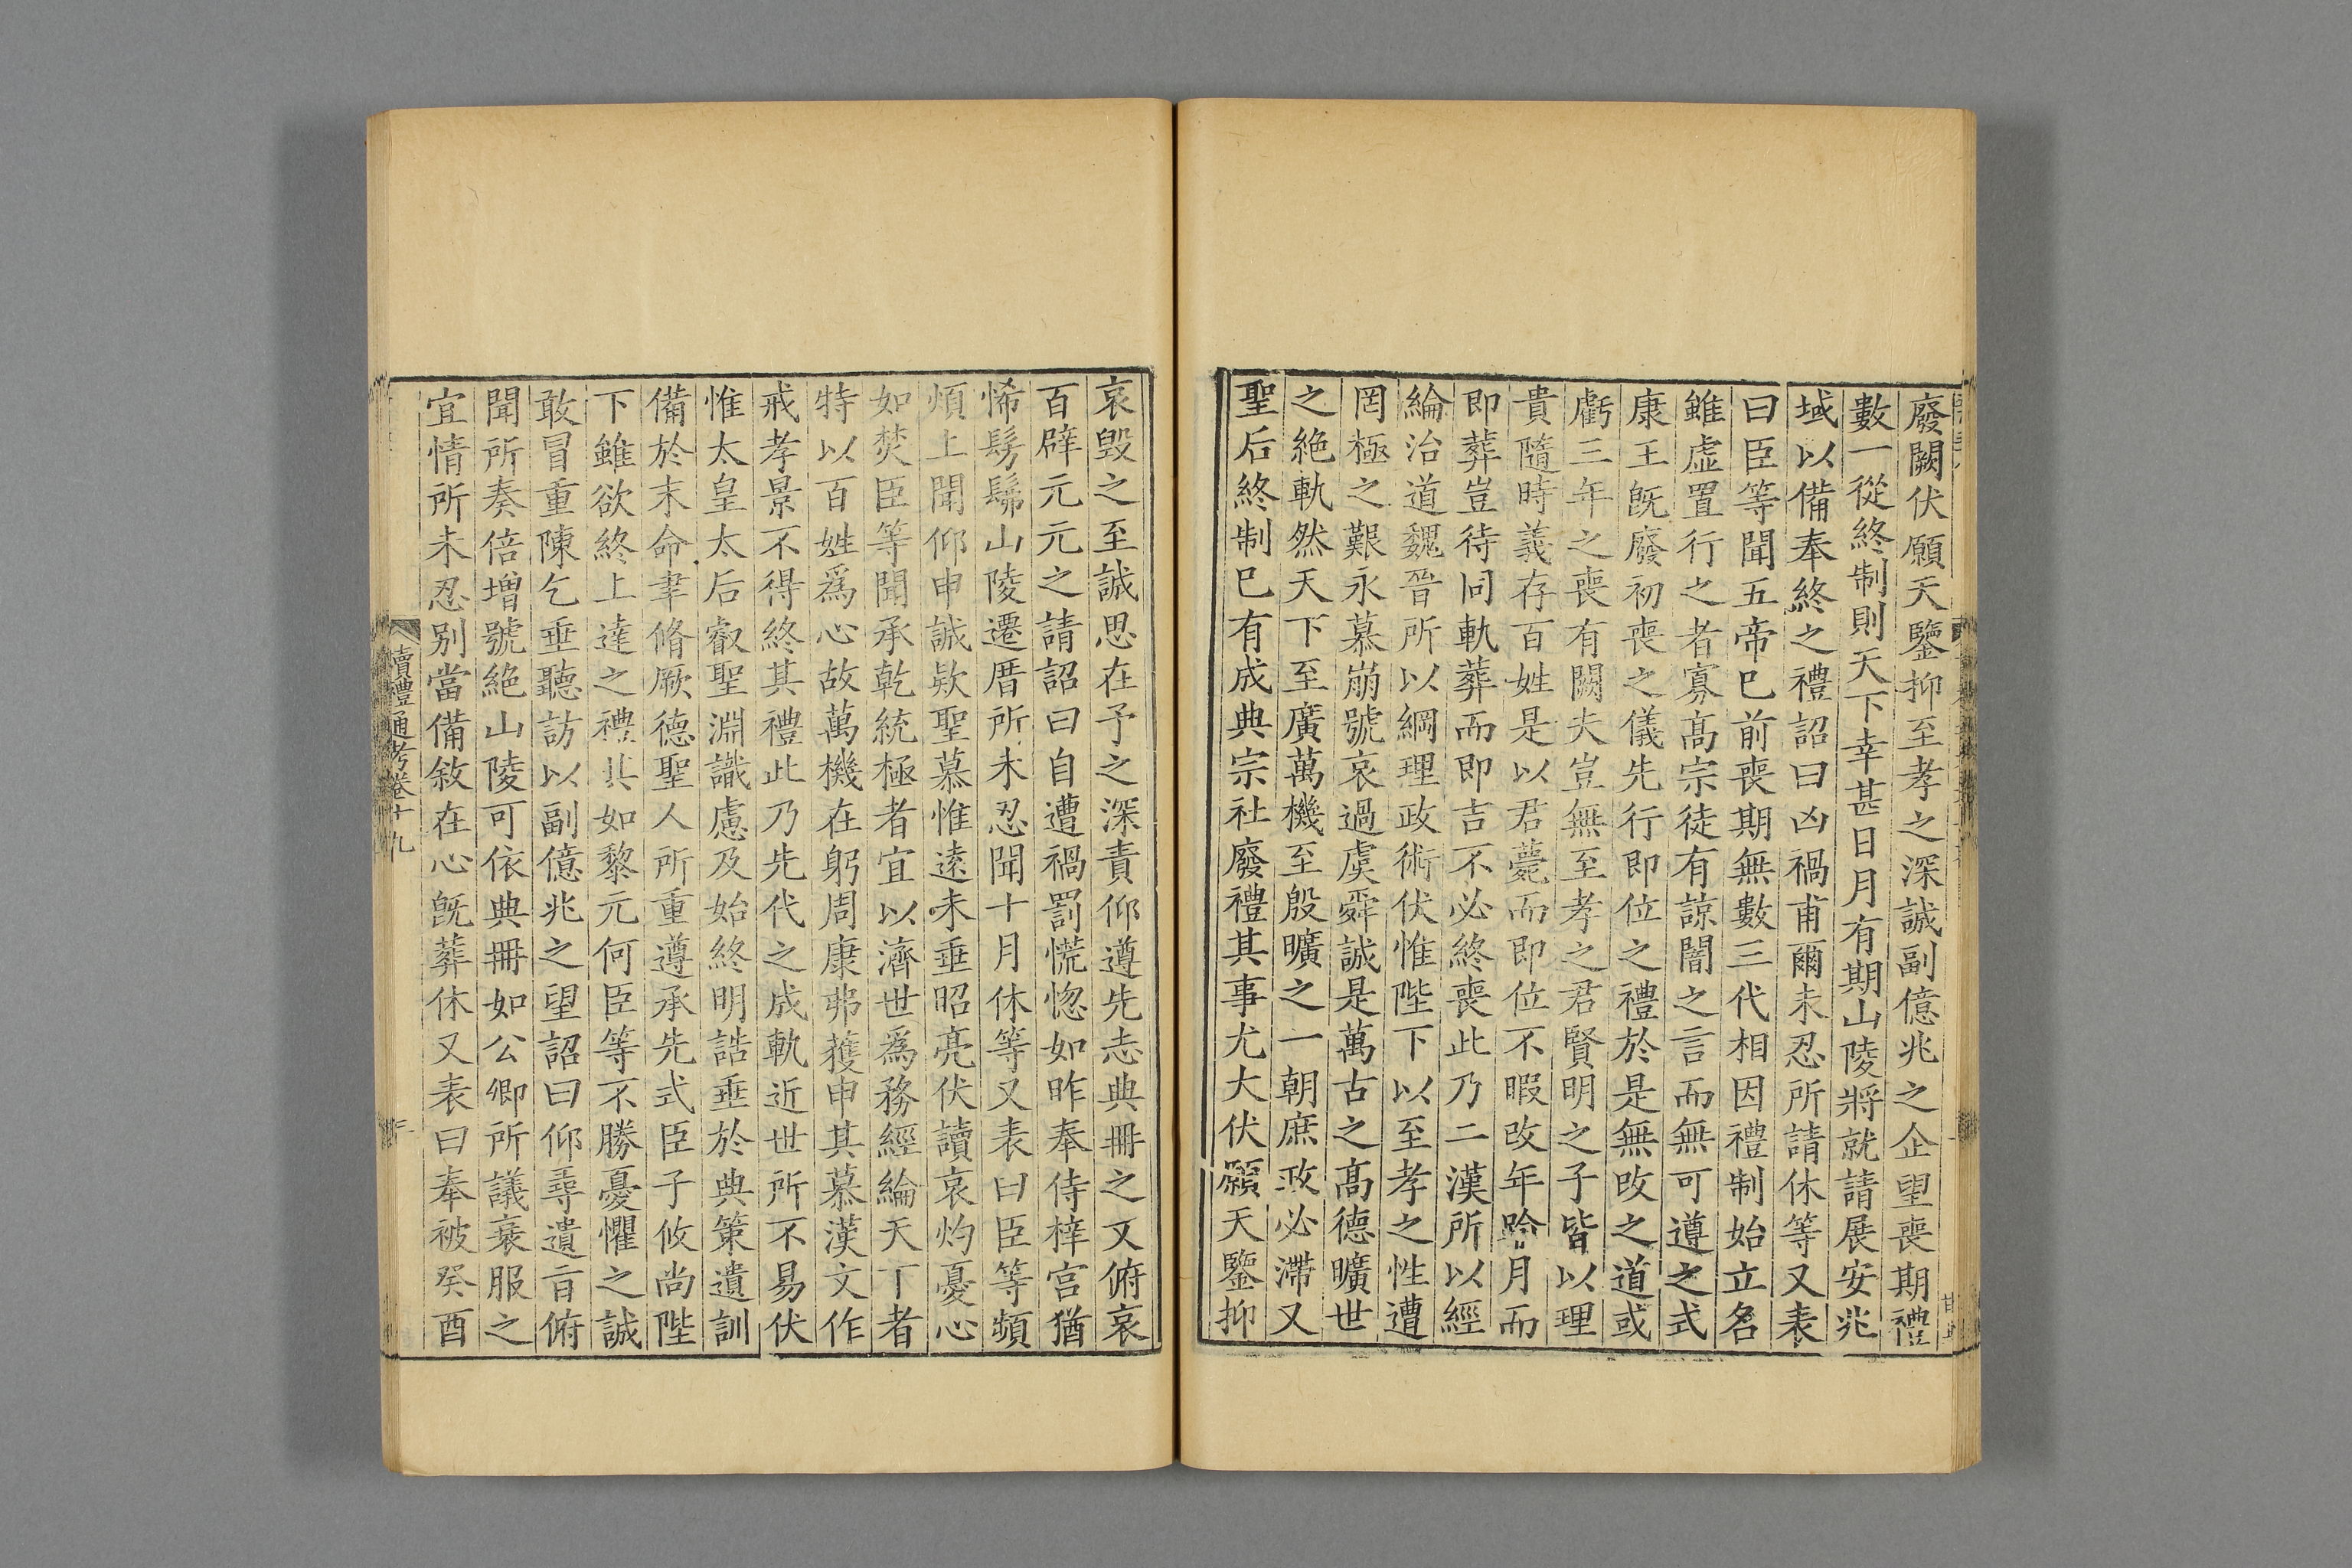 廢闕伏願天鑒抑至孝之深誠副億兆之企望喪期禮
數一從終制則天下幸甚日月有期山陵將就請展安兆
域以備奉終之禮詔曰凶禍甫爾未忍所請休等又表
曰臣等聞五帝巳前喪期無數三代相因禮制始立名
雖虛置行之者寡高宗徒有諒闇之言而無可遵之式
康王旣廢初喪之儀先行即位之禮於是無改之道或
虧三年之喪有闕夫豈無至孝之君賢明之子皆以理
貴隨時義存百姓是以君薨而即位不暇改年踰月而
即葬豈待同軌葬而即吉不必終喪此乃二漢所以經
綸治道魏晉所以綱理政術伏惟陛下以至孝之性遭
罔極之艱永慕崩號哀過虞舜誠是萬古之高德曠世
之絶軌然天下至廣萬機至殷曠之一朝庶政必滯又
聖后終制巳有成典宗社廢禮其事尤大伏願天鑒抑
哀毀之至誠思在予之深責仰遵先志典冊之文俯哀
百辟元元之請詔曰自遭禍罰慌惚如昨奉侍梓宮猶
悕髣髴山陵遷厝所未忍聞十月休等又表曰臣等頻
煩上聞仰申誠欵聖慕惟遠未垂昭亮伏讀哀灼憂心
如焚臣等聞承乾統極者宜以濟世爲務經綸天下者
特以百姓爲心故萬機在躬周康弗獲申其慕漢文作
戒孝景不得終其禮此乃先代之成軌近世所不易伏
惟太皇太后叡聖淵識慮及始終明誥垂於典策遺訓
備於末命聿脩厥德聖人所重遵承先式臣子攸尚陛
下雖欲終上達之禮其如黎元何臣等不勝憂懼之誠
敢冒重陳乞垂聽訪以副億兆之望詔曰仰尋遺旨俯
聞所奏倍增號絶山陵可依典冊如公卿所議衰服之
宜情所未忍别當備敘在心旣葬休又表曰奉被癸酉
讀禮通考卷十九